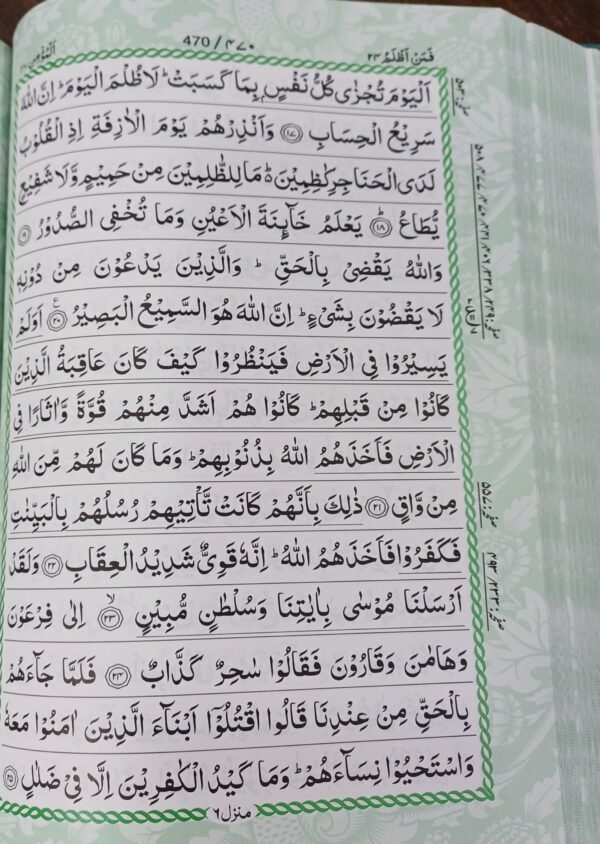 اَلْمُؤْمِن ٤٠
470/٤٧٠
فَمَنْ اَظْلَمُ ٢٤
اَلْيَوْمَ تُجْزٰى كُلُّ نَفْسٍۭ بِمَا كَسَبَتْ ؕ لَا ظُلْمَ الْيَوْمَ ؕ اِنَّ اللّٰهَ
سَرِيْعُ الْحِسَابِ ﴿١٧﴾ وَاَنْذِرْهُمْ يَوْمَ الْاٰزِفَةِ اِذِ الْقُلُوْبُ
لَدَى الْحَنَاجِرِ كٰظِمِيْنَ ؕ مَا لِلظّٰلِمِيْنَ مِنْ حَمِيْمٍ وَّلَا شَفِيْعٍ
يُّطَاعُ ﴿١٨﴾ يَعْلَمُ خَآئِنَةَ الْاَعْيُنِ وَمَا تُخْفِى الصُّدُوْرُ ﴿١٩﴾
وَاللّٰهُ يَقْضِىْ بِالْحَقِّ ؕ وَالَّذِيْنَ يَدْعُوْنَ مِنْ دُوْنِهٖ
لَا يَقْضُوْنَ بِشَىْءٍ ؕ اِنَّ اللّٰهَ هُوَ السَّمِيْعُ الْبَصِيْرُ ﴿٢٠﴾ اَوَلَمْ
يَسِيْرُوْا فِى الْاَرْضِ فَيَنْظُرُوْا كَيْفَ كَانَ عَاقِبَةُ الَّذِيْنَ
كَانُوْا مِنْ قَبْلِهِمْ ؕ كَانُوْا هُمْ اَشَدَّ مِنْهُمْ قُوَّةً وَّاٰثَارًا فِى
الْاَرْضِ فَاَخَذَهُمُ اللّٰهُ بِذُنُوْبِهِمْ ؕ وَمَا كَانَ لَهُمْ مِّنَ اللّٰهِ
مِنْ وَّاقٍ ﴿٢١﴾ ذٰلِكَ بِاَنَّهُمْ كَانَتْ تَّاْتِيْهِمْ رُسُلُهُمْ بِالْبَيِّنٰتِ
فَكَفَرُوْا فَاَخَذَهُمُ اللّٰهُ ؕ اِنَّهٗ قَوِىٌّ شَدِيْدُ الْعِقَابِ ﴿٢٢﴾ وَلَقَدْ
اَرْسَلْنَا مُوْسٰى بِاٰيٰتِنَا وَسُلْطٰنٍ مُّبِيْنٍ ﴿٢٣﴾ اِلٰى فِرْعَوْنَ
وَهَامٰنَ وَقَارُوْنَ فَقَالُوْا سٰحِرٌ كَذَّابٌ ﴿٢٤﴾ فَلَمَّا جَآءَهُمْ
بِالْحَقِّ مِنْ عِنْدِنَا قَالُوا اقْتُلُوْۤا اَبْنَآءَ الَّذِيْنَ اٰمَنُوْا مَعَهٗ
وَاسْتَحْيُوْا نِسَآءَهُمْ ؕ وَمَا كَيْدُ الْكٰفِرِيْنَ اِلَّا فِىْ ضَلٰلٍ ﴿٢٥﴾
منزل ٦